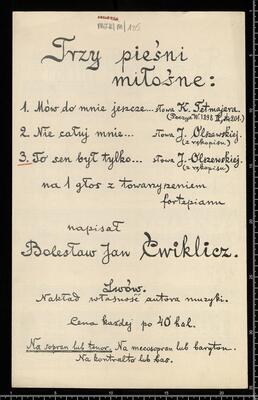 Trzy pieśni
miłośne:
1. Mów do mnie jeszcze... słowa K. Tetmajera.
(Poezye W. 1898
2. Nie całuj mnie... słowa J. Olszewskiej.
(z rękopisu)
3. To sen był tylko... słowa J. Olszewskiej.
(z rękopisu)
na 1 głos z towarzyszeniem
fortepianu
napisał
Bolesław Jan Ćwiklicz.
Lwów.
Nakład i własność autora muzyki.
Cena każdej po 40 hal.
Na sopran lub tenor. Na mezosopran lub baryton.
Na kontralto lub bas.